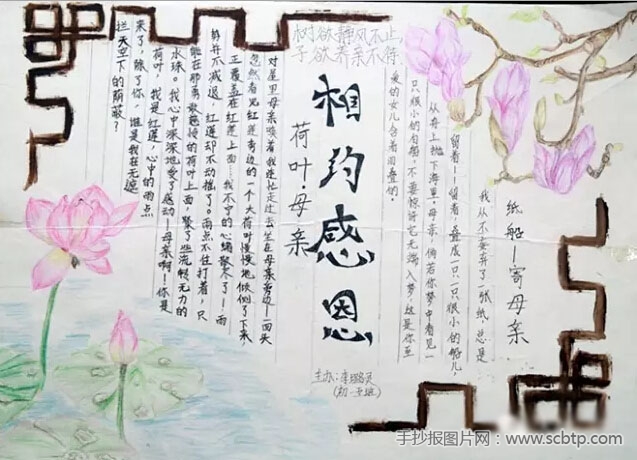 树欲静风不止，
子欲养亲不待
相约感恩
纸船—寄母亲
我从不妄弃了一张纸总是
留着——留着，叠成一只一只很小的船儿，
从舟上抛下海里。母亲，倘若你梦中看见一
只很小的白船，不要惊讶它无端入梦，这是你至
爱的女儿含着泪叠的。
荷叶·母亲
对屋里母亲唤着我连忙走过去坐在母亲旁边—回头
忽然看见红莲旁边的一个大荷叶慢慢地倾侧了下来，
正覆盖在红莲上面……我不宁的心绪散尽了—雨
势并不减退 红莲却不动摇了。雨点不住打着，只
能在那勇敢慈怜的荷叶上面，聚了些流转无力的
水珠。我心中深深地受了感动—母亲啊！你是
荷叶，我是红莲，心中的雨点
来了，除了你，谁是我在无遮
拦天空下的荫蔽？
主办：
手抄报图片网：www.scbtp.com